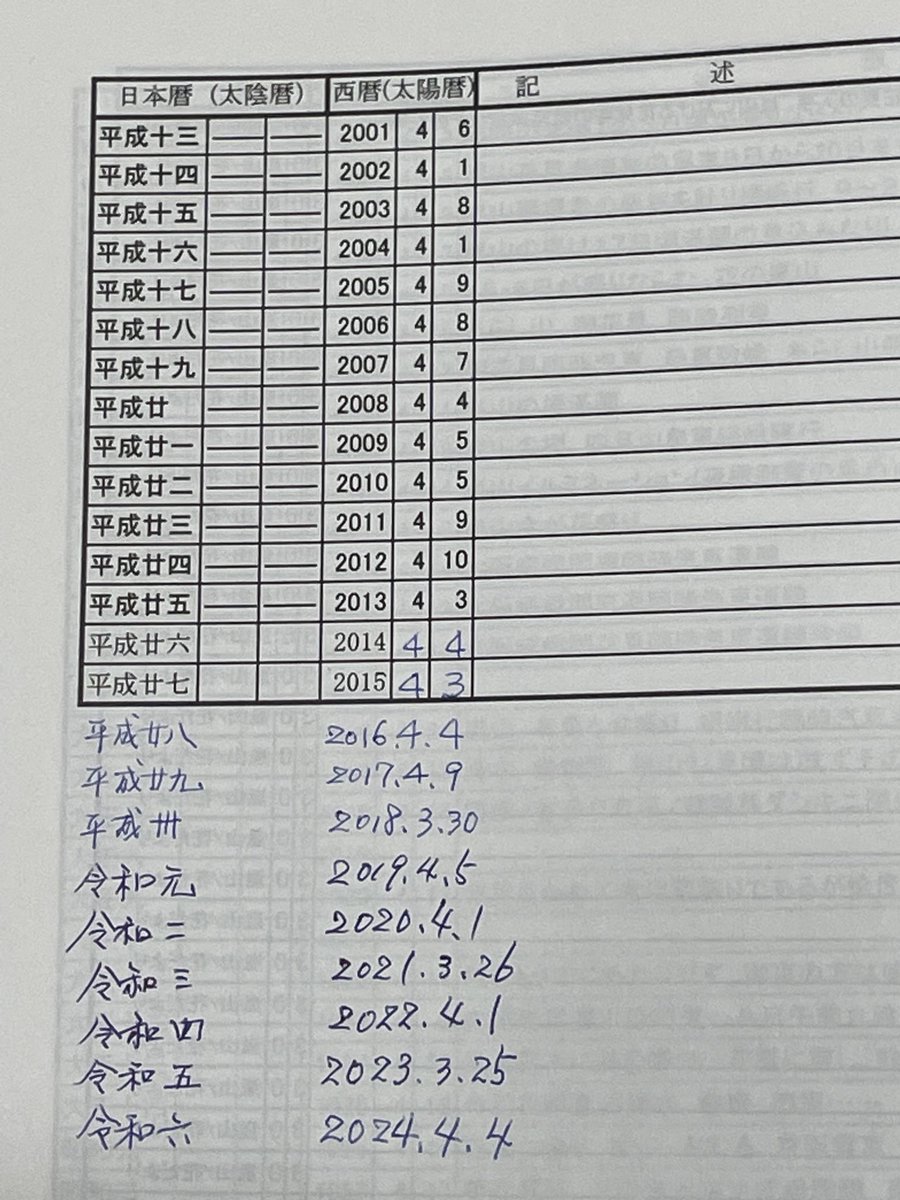 日本暦（太陰暦） 西暦(太陽暦) 記 述
平成十三 —— —— 2001 4 6
平成十四 —— —— 2002 4 1
平成十五 —— —— 2003 4 8
平成十六 —— —— 2004 4 1
平成十七 —— —— 2005 4 9
平成十八 —— —— 2006 4 8
平成十九 —— —— 2007 4 7
平成廿 —— —— 2008 4 4
平成廿一 —— —— 2009 4 5
平成廿二 —— —— 2010 4 5
平成廿三 —— —— 2011 4 9
平成廿四 —— —— 2012 4 10
平成廿五 —— —— 2013 4 3
平成廿六 2014 4 4
平成廿七 2015 4 3
平成廿八 2016.4.4
平成廿九 2017.4.9
平成卅 2018.3.30
令和元 2019.4.5
令和二 2020.4.1
令和三 2021.3.26
令和四 2022.4.1
令和五 2023.3.25
令和六 2024.4.4